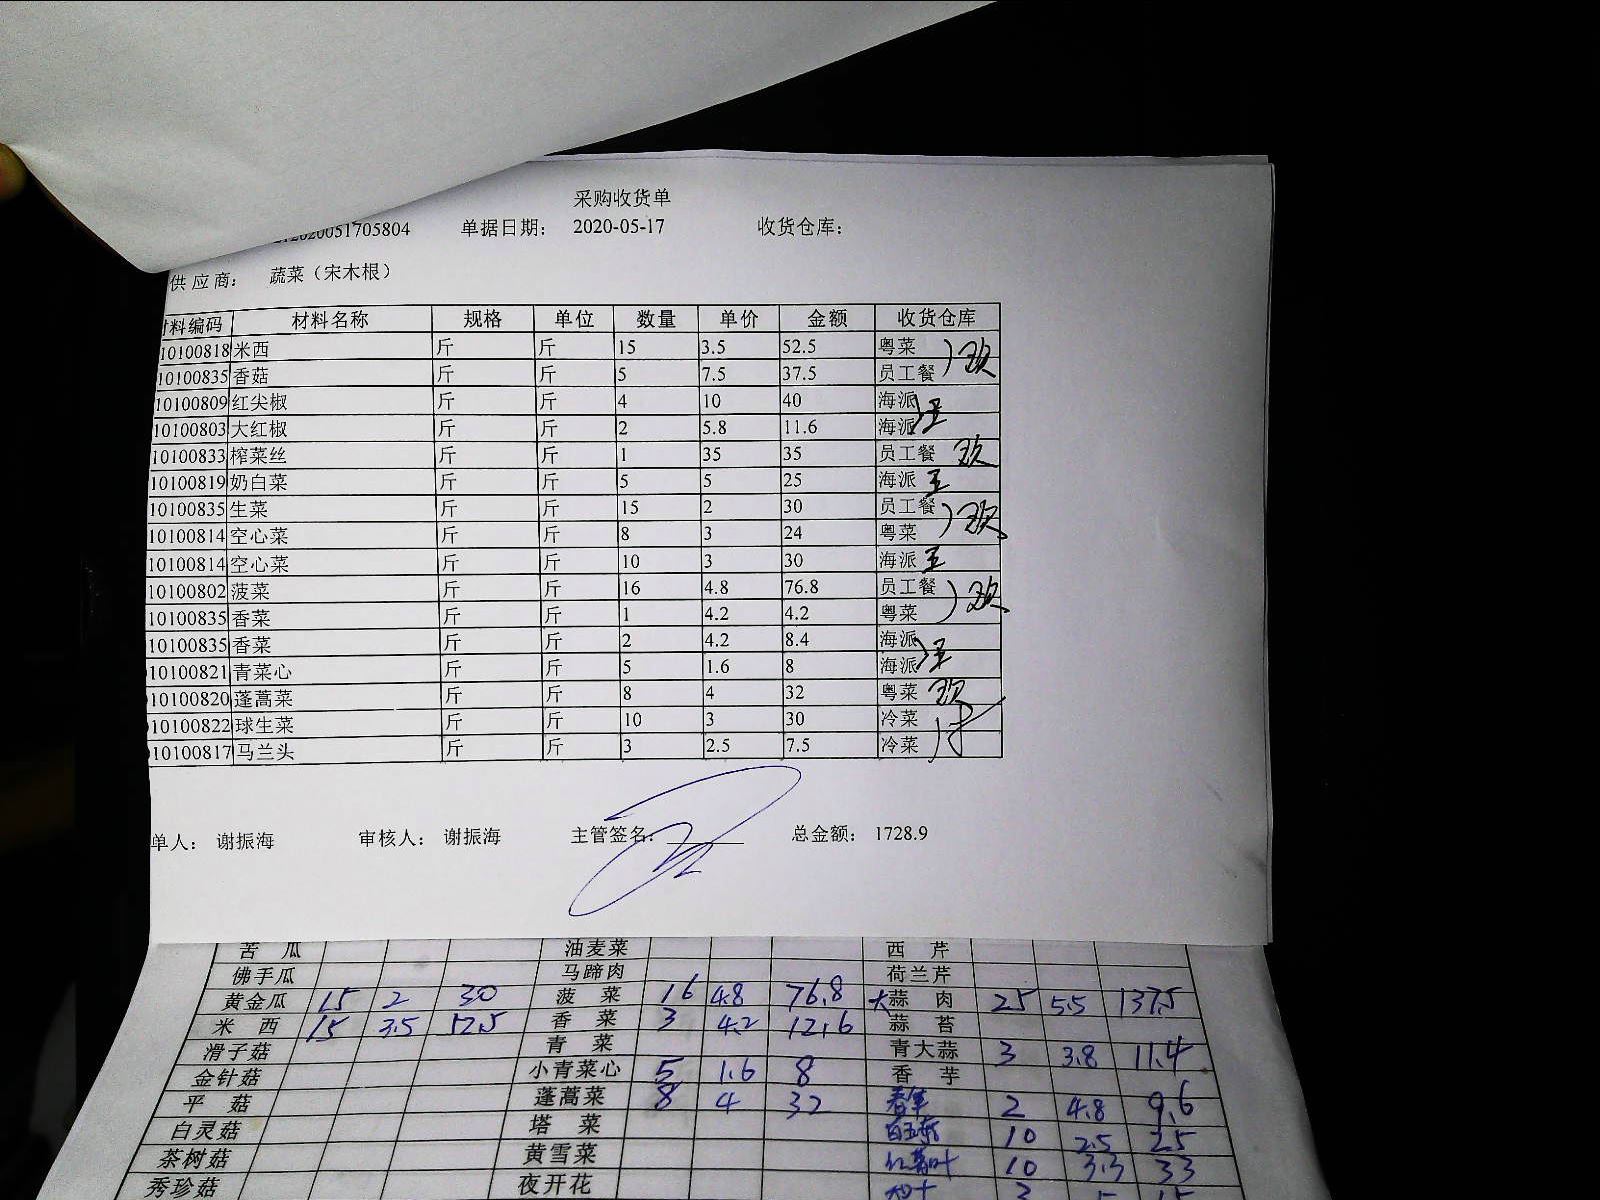 采购收货单
2020051705804 单据日期： 2020-05-17 收货仓库：
供应商： 蔬菜（宋木根）
材料编码 材料名称 规格 单位 数量 单价 金额 收货仓库
10100818 米西 斤 斤 15 3.5 52.5 粤菜
10100835 香菇 斤 斤 5 7.5 37.5 员工餐
10100809 红尖椒 斤 斤 4 10 40 海派
10100803 大红椒 斤 斤 2 5.8 11.6 海派
10100833 榨菜丝 斤 斤 1 35 35 员工餐
10100819 奶白菜 斤 斤 5 5 25 海派
10100835 生菜 斤 斤 15 2 30 员工餐
10100814 空心菜 斤 斤 8 3 24 粤菜
10100814 空心菜 斤 斤 10 3 30 海派
10100802 菠菜 斤 斤 16 4.8 76.8 员工餐
10100835 香菜 斤 斤 1 4.2 4.2 粤菜
10100835 香菜 斤 斤 2 4.2 8.4 海派
10100821 青菜心 斤 斤 5 1.6 8 海派
10100820 蓬蒿菜 斤 斤 8 4 32 粤菜
10100822 球生菜 斤 斤 10 3 30 冷菜
10100817 马兰头 斤 斤 3 2.5 7.5 冷菜
单人： 谢振海 审核人： 谢振海 主管签名： 总金额： 1728.9
苦瓜 油麦菜 西芹
佛手瓜 马蹄肉 荷兰芹
黄金瓜 15 2 30 菠菜 16 4.8 76.8 大蒜肉 25 5.5 137.5
米西 15 3.5 52.5 香菜 3 4.2 12.6 蒜苔
滑子菇 青菜 青大蒜 3 3.8 11.4
金针菇 小青菜心 5 1.6 8 香芋
平菇 蓬蒿菜 8 4 32 2 4.8 9.6
白灵菇 塔菜 10 2.5 25
茶树菇 黄雪菜 红薯叶 10 3.3 33
秀珍菇 夜开花